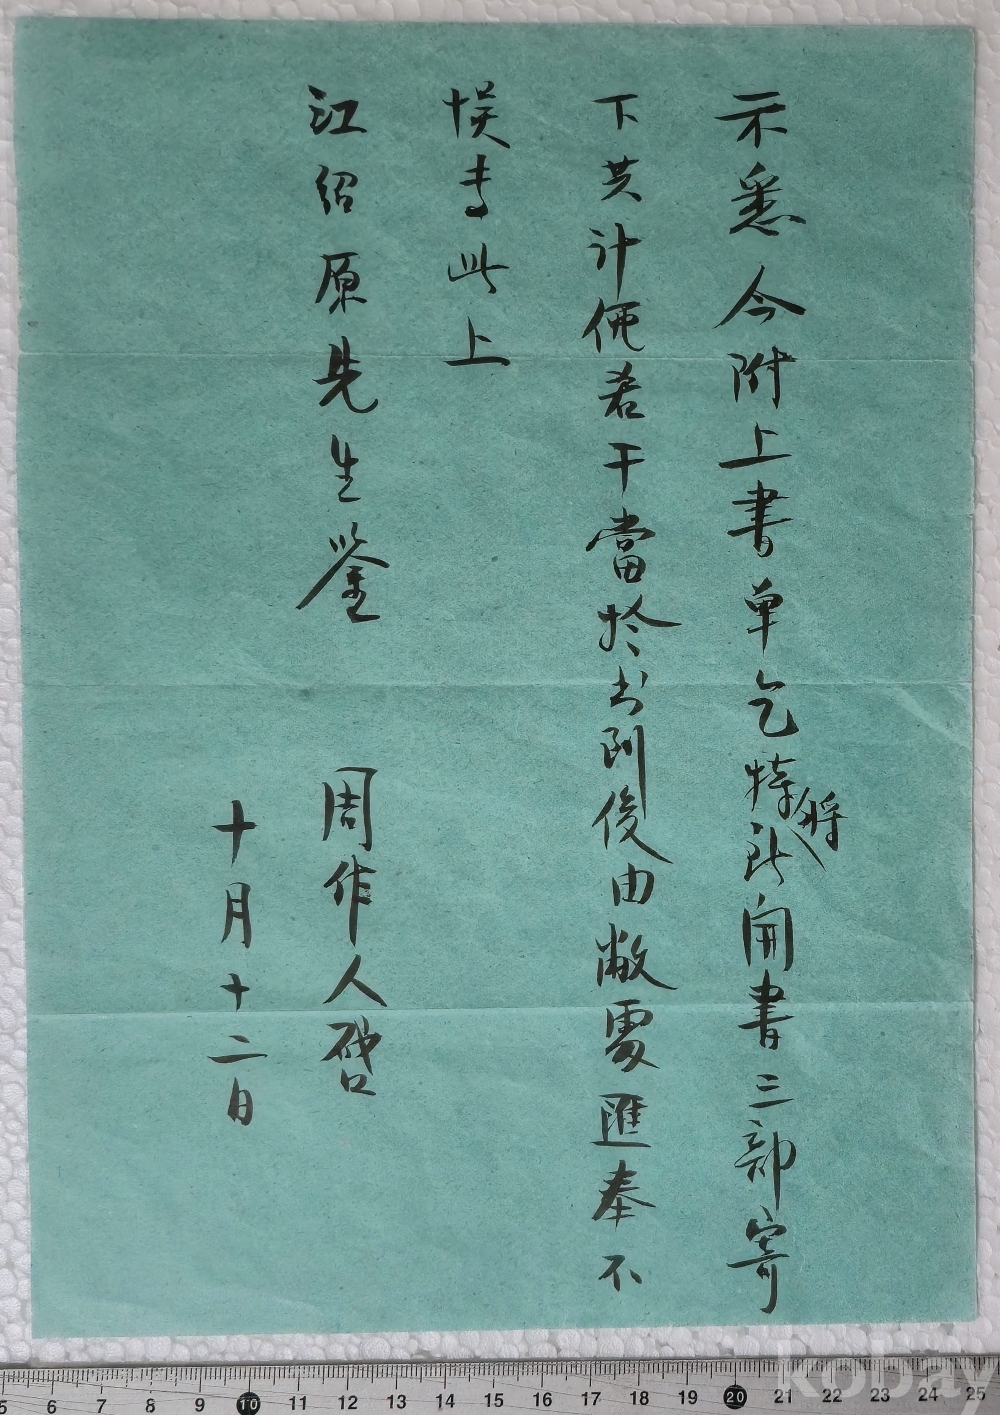 示悉今附上書单乞特将所開書三部寄
下共计価若干當於书到後由敝處匯奉不
悮専此上
江绍原先生鉴
周作人啓
十月十二日
5 6 7 8 9 10 11 12 13 14 15 16 17 18 19 20 21 22 23 24 25
kobay